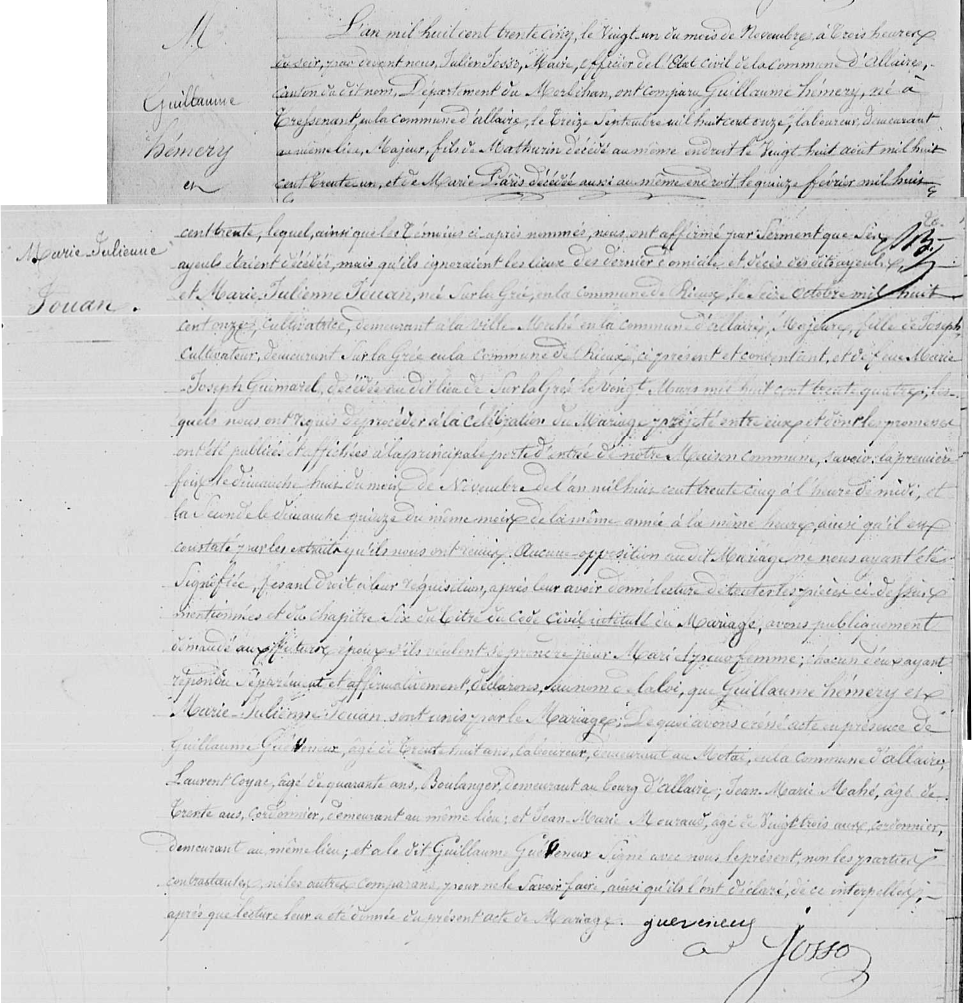 M
Guillaume
hémery
et
L'an mil huit cent trente cinq, le Vingt un du mois de Novembre, à Trois heures
du soir, par devant nous, Julien Josso, Maire, officier de l'Etat civil de la Commune d'allaire,
Canton du dit nom, Département du Morbihan, ont comparu Guillaume hémery, né à
Tressenant, en la commune d'allaire, le Treize Septembre mil huit cent onze, laboureur, demeurant
au même lieu, Majeur, fils de Mathurin décédé au même endroit le Vingt huit aout mil huit
cent trente un, et de Marie Paris décédé aussi au même endroit le quinze février mil huit
Marie Julienne
Jouan.
cent trente, lequel, ainsi que les Témoins ci après nommés, nous ont affirmé par Serment que Ses
ayeuls étaient décédés, mais qu'ils ignoraient les lieux des dernier domicile et décès des dits ayeuls
et Marie Julienne Jouan, née Sur la Grée, en la Commune de Rieux, le Seize octobre mil huit
cent onze, cultivatrice, demeurant à la Ville Maché en la commune d'allaire, Majeure, fille de Joseph,
Cultivateur, demeurant Sur la Grée en la commune de Rieux, ci présent et consentant, et de feue Marie
Joseph Guimarel, décédée au dit lieu de Sur la Grée le Vingt Mars mil huit cent trente quatre; les-
quels nous ont requis de procéder à la célébration du Mariage projeté entre eux et dont les promesses
ont été publiées et affichées à la principale porte d'entré de notre Maison commune, savoir: la première
fois le dimanche huit du mois de Novembre de l'an mil huit cent trente cinq à l'heure de midi, et
la Seconde le dimanche quinze du même mois de la même année à la même heure, ainsi qu'il est
constaté par les extraits qu'ils nous ont remis. Aucune opposition au dit Mariage ne nous ayant été
Signifiée, fesant droit à leur réquisition, après leur avoir donné lecture de toutes les pièces ci-dessus
mentionnées et du chapitre Six du titre du Code Civil intitulé du Mariage, avons publiquement
demandé aux futurs époux s'ils veulent se prendre pour Mari et pour femme; chacun d'eux ayant
répondu Séparément et affirmativement, déclarons, au nom de la loi, que Guillaume hémery et
Marie-Julienne Jouan sont unis par le Mariage; De quoi avons dressé acte en présence de
Guillaume Guéveneux, âgé de Trente huit ans, laboureur, demeurant au Motai, en la commune d'allaire;
Laurent Coyac, âgé de quarante ans, Boulanger, demeurant au bourg d'allaire; Jean Marie Mahé, âgé de
Trente ans, cordonnier, demeurant au même lieu; et Jean Marie Mouraud, agé de Vingt trois ans, cordonnier,
demeurant au même lieu; et a le dit Guillaume Guéveneux Signé avec nous le présent, non les parties
contractantes, ni les autres comparans, pour ne le Savoir faire, ainsi qu'ils l'ont déclaré, de ce interpellés,
après que lecture leur a été donnée du présent acte de Mariage. gueveneux
Josso